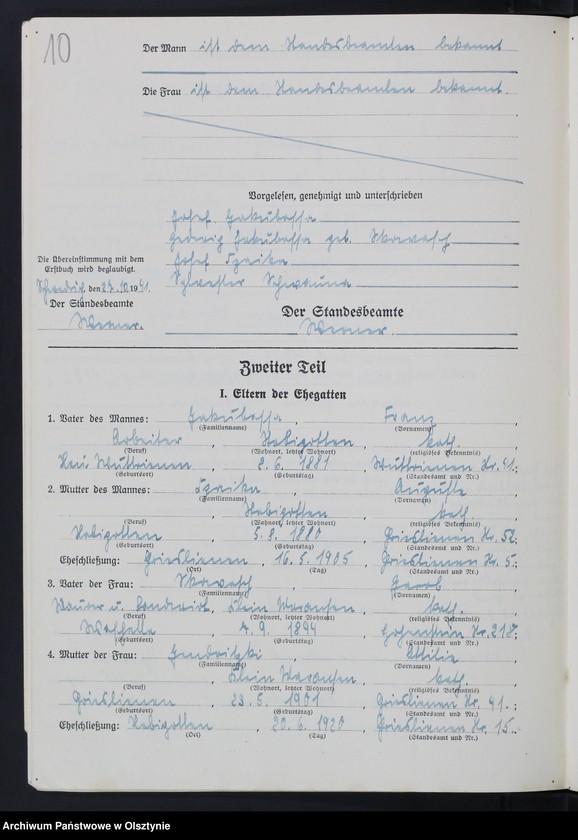 10
Der Mann ist dem Standesbeamten bekannt
Die Frau ist dem Standesbeamten bekannt.
Vorgelesen, genehmigt und unterschrieben
Josef Jakubassa
Hedwig Jakubassa geb. Skowasch
Josef Czaika
Sylvester Schwauna
Die Übereinstimmung mit dem
Erstbuch wird beglaubigt.
den 27.10.1941.
Der Standesbeamte
Werner.
Der Standesbeamte
Werner.
Zweiter Teil
I. Eltern der Ehegatten
1. Vater des Mannes: Jakubassa, Franz,
(Familienname) (Vornamen)
Arbeiter, Stabigotten, kath.
(Beruf) (Wohnort, letzter Wohnort) (religiöses Bekenntnis)
Neu Wuttrienen 2. 6. 1881 Wuttrienen Nr. 41.;
(Geburtsort) (Geburtstag) (Standesamt und Nr.)
2. Mutter des Mannes: Czaika, Auguste,
(Familienname) (Vornamen)
Stabigotten, kath.
(Beruf) (Wohnort, letzter Wohnort) (religiöses Bekenntnis)
Stabigotten 5. 8. 1880 Grieslienen Nr. 52.
(Geburtsort) (Geburtstag) (Standesamt und Nr.)
Eheschließung: Grieslienen, 16. 5. 1905, Grieslienen Nr. 5.;
(Ort) (Tag) (Standesamt und Nr.)
3. Vater der Frau: Skowasch, Jacob,
(Familienname) (Vornamen)
Maurer u. Landwirt, Klein Waransen, kath.
(Beruf) (Wohnort, letzter Wohnort) (religiöses Bekenntnis)
4. 9. 1894 Hohenstein Nr. 218.;
(Geburtsort) (Geburtstag) (Standesamt und Nr.)
4. Mutter der Frau: Jendritzki, Ottilie,
(Familienname) (Vornamen)
Klein Waransen, kath.
(Beruf) (Wohnort, letzter Wohnort) (religiöses Bekenntnis)
Grieslienen 23. 5. 1901 Grieslienen Nr. 41.;
(Geburtsort) (Geburtstag) (Standesamt und Nr.)
Eheschließung: Stabigotten, 20. 6. 1920, Grieslienen Nr. 15.
(Ort) (Tag) (Standesamt und Nr.)
Archiwum Państwowe w Olsztynie